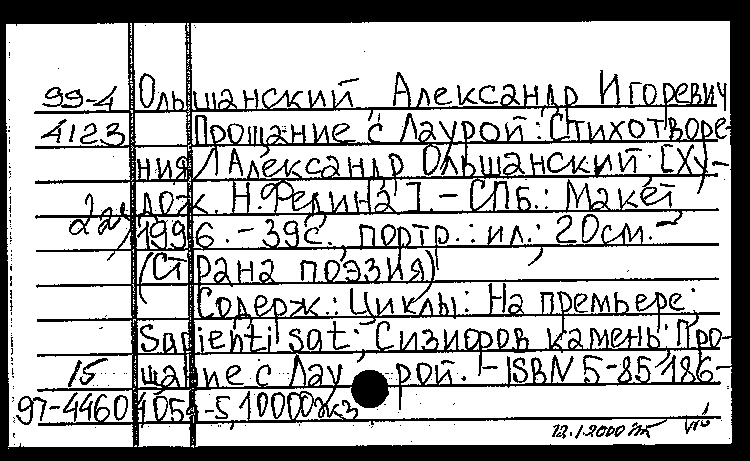 99-4 Ольшанский, Александр Игоревич
4123 Прощание с Лаурой: Стихотворе-
ния / Александр Ольшанский; [Ху-
дож. Н.Федина]. - СПб.: Макет
1996. - 39с., портр.: ил.; 20см. -
(Страна поэзия)
Содерж.: Циклы: На премьере;
Sapienti sat; Сизифов камень; Про-
15 щание с Лаурой. - ISBN 5-85186-
97-4460 1054-5, 10000экз
12.1.2000